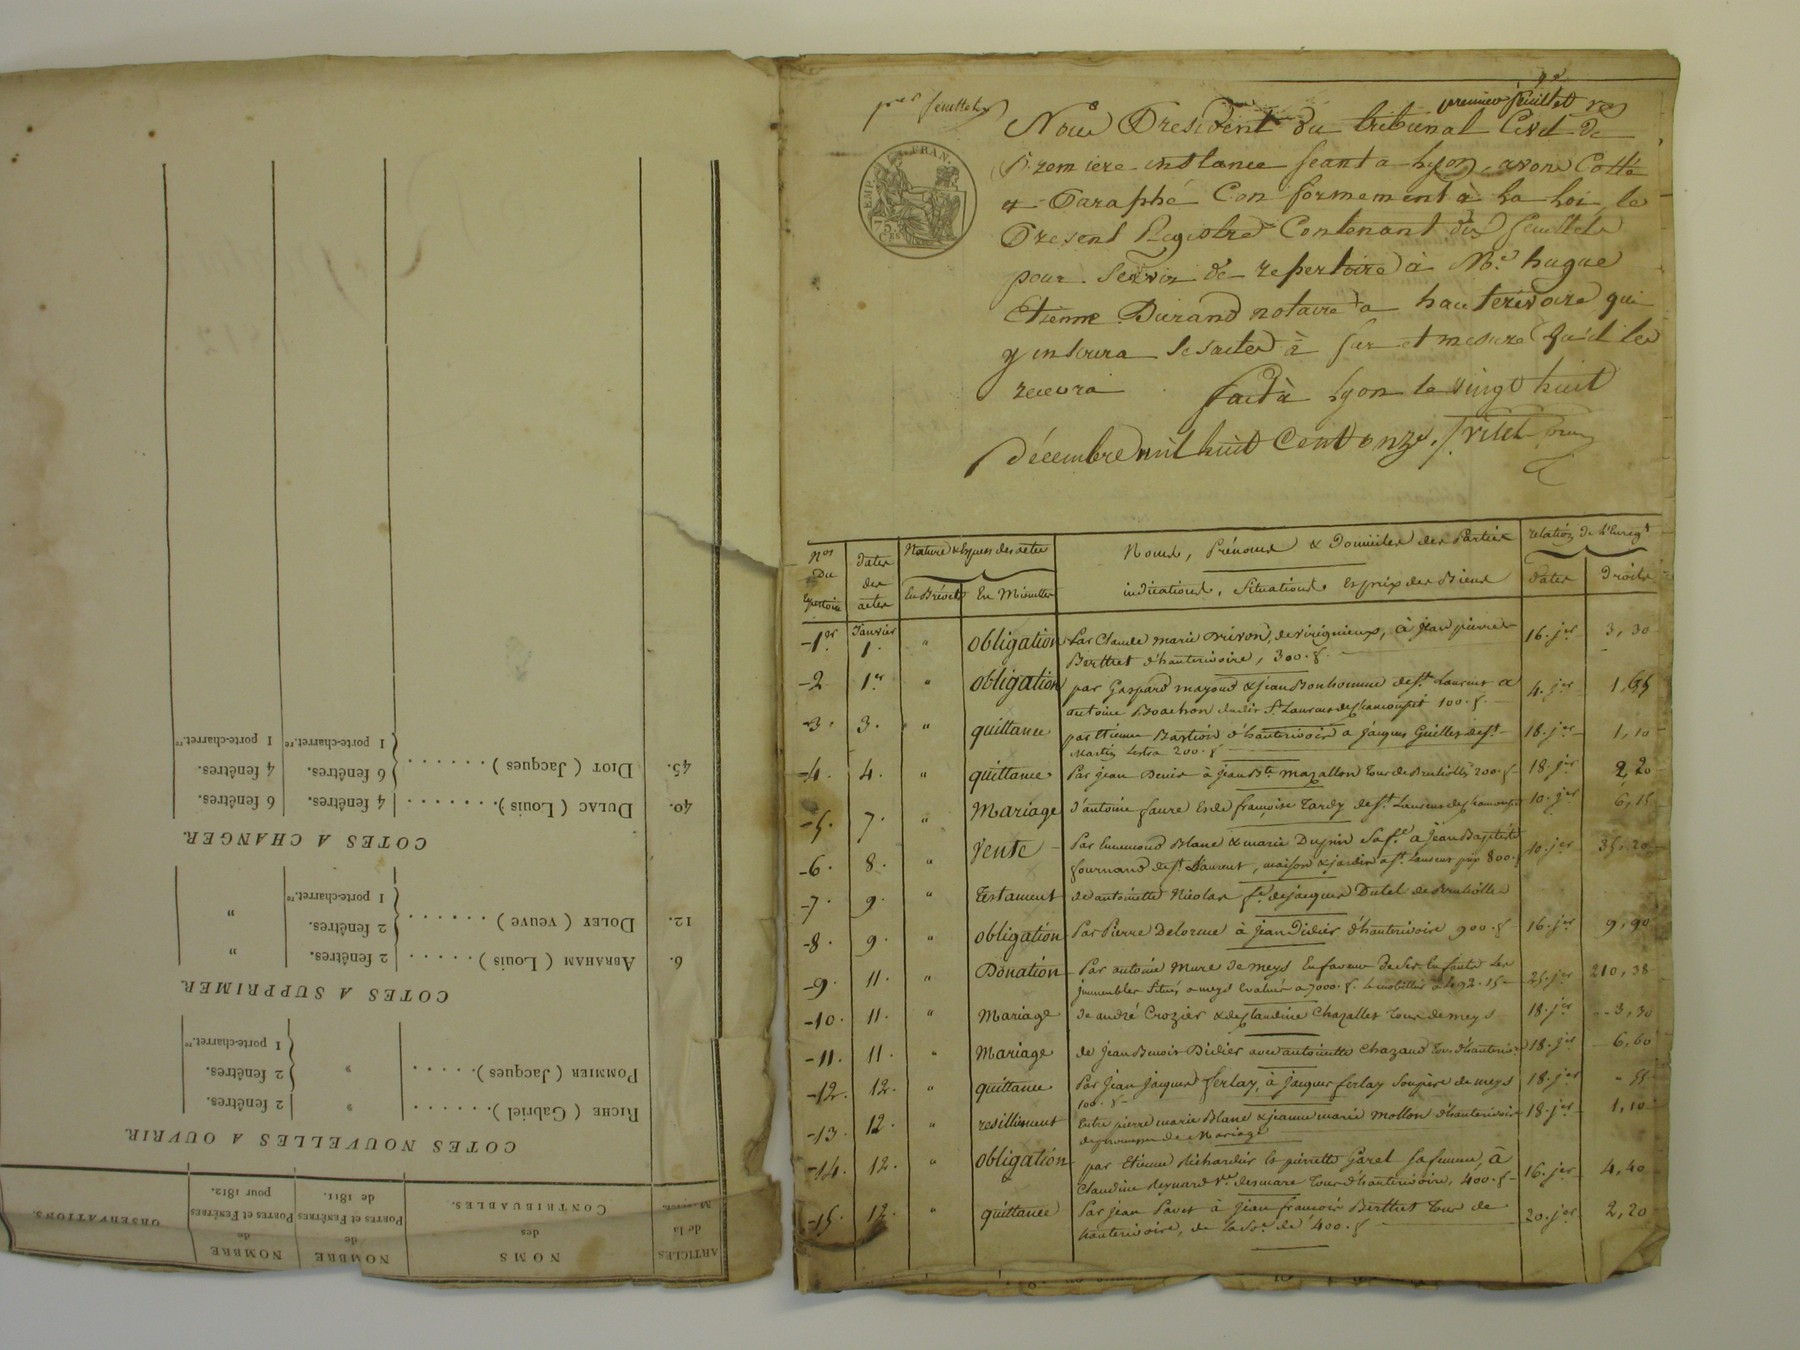 ARTICLES de la Matrice.
NOMS des CONTRIBUABLES.
NOMBRE de PORTES et FENÊTRES de 1811.
NOMBRE de PORTES et FENÊTRES pour 1812.
OBSERVATIONS.
COTES NOUVELLES A OUVRIR
RICHE ( Gabriel ). . . . . . " 2 fenêtres.
POMMIER ( Jacques ). . . . . " { 2 fenêtres.
1 porte-charret.re
COTES A SUPPRIMER
6. ABRAHAM ( Louis ) . . . . . 2 fenêtres. "
12. DOLEY ( veuve ) . . . . . . { 2 fenêtres. "
1 porte-charret.re
COTES A CHANGER
40. DULAC ( Louis ). . . . . . . 4 fenêtres. 6 fenêtres.
45. DIOT ( Jacques ) . . . . . . { 6 fenêtres. 4 fenêtres.
1 porte-charret.re 1 porte-charret.re
premier feuillet
EMP. FRAN.
75 CES
Nous President du tribunal Civil de
Premiere instance seant a Lyon avons Cotté
et Paraphé Conformement à La Loi le
Present Registre Contenant dix feuillets
pour servir de repertoire à Me. hugue
Etienne Durand notaire a hauterivoire qui
y inscrira ses actes à fur et mesure qu'il les
recevra fait à Lyon le vingt huit
décembre mil huit Cent onze.
Nos Du Repertoire
Dates des actes
Nature & Espèces des actes
En Brévets
En Minuttes
Noms, Prénoms & Domiciles des Parties
indications, Situations Et prix des Biens
relation de l'Enregt
Dates
Droits
1er. Janvier 1. " obligation Par Claude marie de virigneux, à jean pierre 16. jer 3, 30
Berthet d'hauterivoire, 300. f
2 1er " obligation par Gaspard mayoud & jean Bonhomme de st. Laurent a 4. jer 1, 65
antoine Boachon dudit St. Laurent de chamousset 100. f.
3. 3. " quittance par Etienne Bastion d'hauterivoire a jacques Guillet de st. 18. jer 1, 10
Martin Lestra 200. f
4. 4. " quittance Par jean Denis à jean Bte mazallon tous de Brulliolles 200. f 18. jer 2, 20
5. 7. " Mariage d'antoine faure Et de françoise Tardy de st. Laurent de chamousset 10. jer 6, 15
6. 8. " Vente Par Ennemond Blanc & marie Dupin sa fe. a Jean Baptiste 10. jer 35, 20
fournand de st. Laurent, maison & jardin a st. Laurent prix 800. f
7. 9. " Testament de antoinette Nicolas fe. de jacques Dutel de Brulliolles
8. 9. " obligation Par Pierre Delorme à jean Didier d'hauterivoire 900. f 16. jer 9, 90
9. 11. " Donation Par antoine Mure de meys En faveur de ses Enfants des 25. jer 210, 38
immeubles situés a meys Evalués a 7000. f. Le mobilier a 492. 15
10. 11. " Mariage de andré Crozier & de claudine Chazalles tous de meys 18. jer 3, 30
11. 11. " Mariage de jean Benoit Didier avec antoinette Chazaud tous d'hauterivoire 18. jer 6, 60
12. 12. " quittance Par Jean jacques ferlay, à jacques ferlay son père de meys 18. jer 55
100. f
13. 12. " resilliement Entre pierre marie Blanc & jeanne marie Mollon d'hauterivoire 18. jer 1, 10
de promesse de Mariage
14. 12. " obligation par Etienne Richardier Et pierrette Garel sa femme, à 16. jer 4, 40
Claudine Reynard Ve. desmare tous d'hauterivoire, 400. f
15. 12. " quittance Par jean Pavet à jean françois Berthet tous de 20. jer 2, 20
hauterivoire, de la se. de 400. f